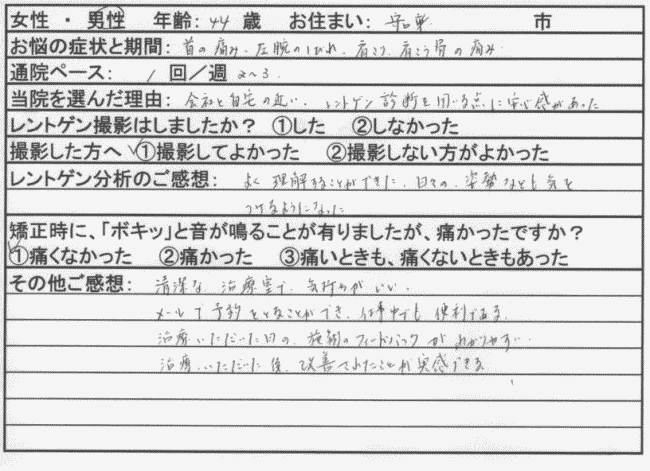 女性 ・ 男性 年齢: 44 歳 お住まい: 市
お悩の症状と期間: 首の痛み、左腕のしびれ、肩こり、肩こう骨の痛み
通院ペース: 1 回／週 2~3.
当院を選んだ理由: 会社と自宅の近い、レントゲン診断を用いる点に安心感があった
レントゲン撮影はしましたか? ①した ②しなかった
撮影した方へ ①撮影してよかった ②撮影しない方がよかった
レントゲン分析のご感想: よく理解することができた。日々の、姿勢なども気を
つけるようになった
矯正時に、「ボキッ」と音が鳴ることが有りましたが、痛かったですか?
①痛くなかった ②痛かった ③痛いときも、痛くないときもあった
その他ご感想: 清潔な治療室で、気持ちがいい。
メールで予約をとることができ、仕事中でも便利である。
治療いただいた日の、施術のフィードバックがわかりやすい.
治療いただいた後、改善されたことが実感できる